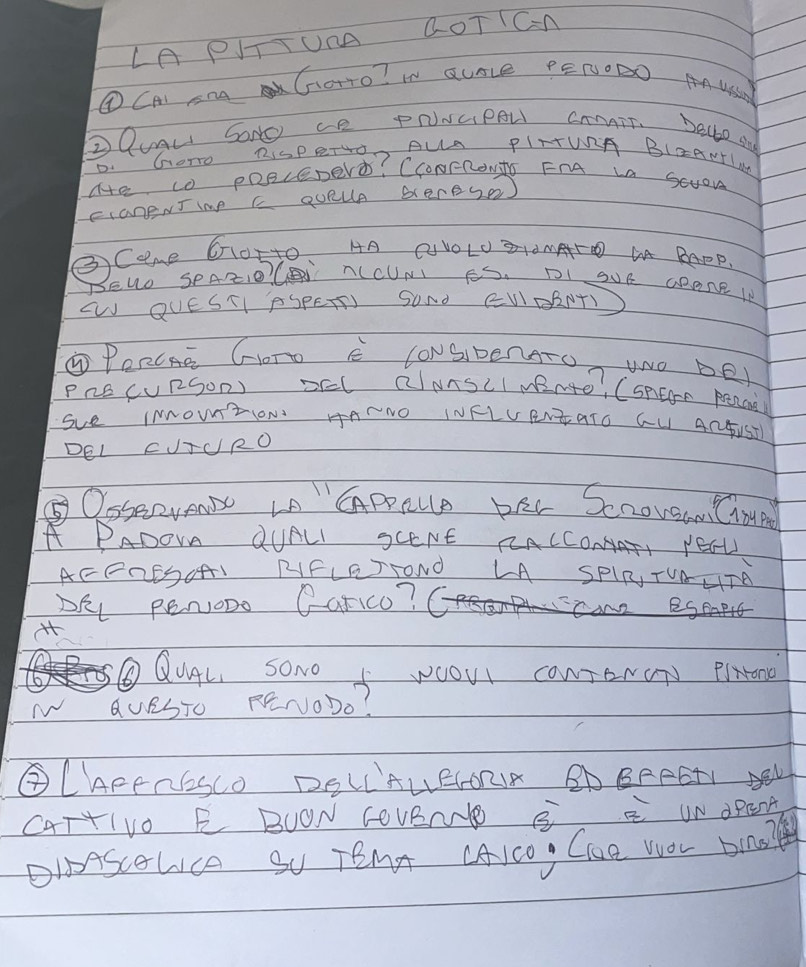 LA PITTURA GOTICA
① CHI ERA GIOTTO? IN QUALE PERIODO HA
② QUALI SONO LE PRINCIPALI CARATT. DELLO
DI GIOTTO RISPETTO ALLA PITTURA BIZANTINA
CHE LO PRECEDEVA? (CONFRONTO FRA LA SCUOLA
FIORENTINA E QUELLA SIENESE)
③ COME GIOTTO HA RIVOLUZIONATO LA RAPP.
DELLO SPAZIO? ( ALCUNI ES. DI SUE OPERE IN
CUI QUESTI ASPETTI SONO EVIDENTI)
④ PERCHÈ GIOTTO È CONSIDERATO UNO DEI
PRECURSORI DEL RINASCIMENTO? (SPIEGA PERCHÈ
SUE INNOVAZIONI HANNO INFLUENZATO GLI ARTISTI
DEL FUTURO
⑤ OSSERVANDO LA "CAPPELLA DEL SCROVEGNI
A PADOVA QUALI SCENE RACCONTATI NEGLI
AFFRESCHI RIFLETTONO LA SPIRITUALITÀ
DEL PERIODO GOTICO? (
⑥ QUALI SONO I NUOVI CONTENUTI PITTORICI
IN QUESTO PERIODO?
⑦ L'AFFRESCO DELL'ALLEGORIA ED EFFETI DEL
CATTIVO E BUON GOVERNO È È UN OPERA
DIDASCALICA SU TEMA LAICO, CIOÈ VUOL DIRE?